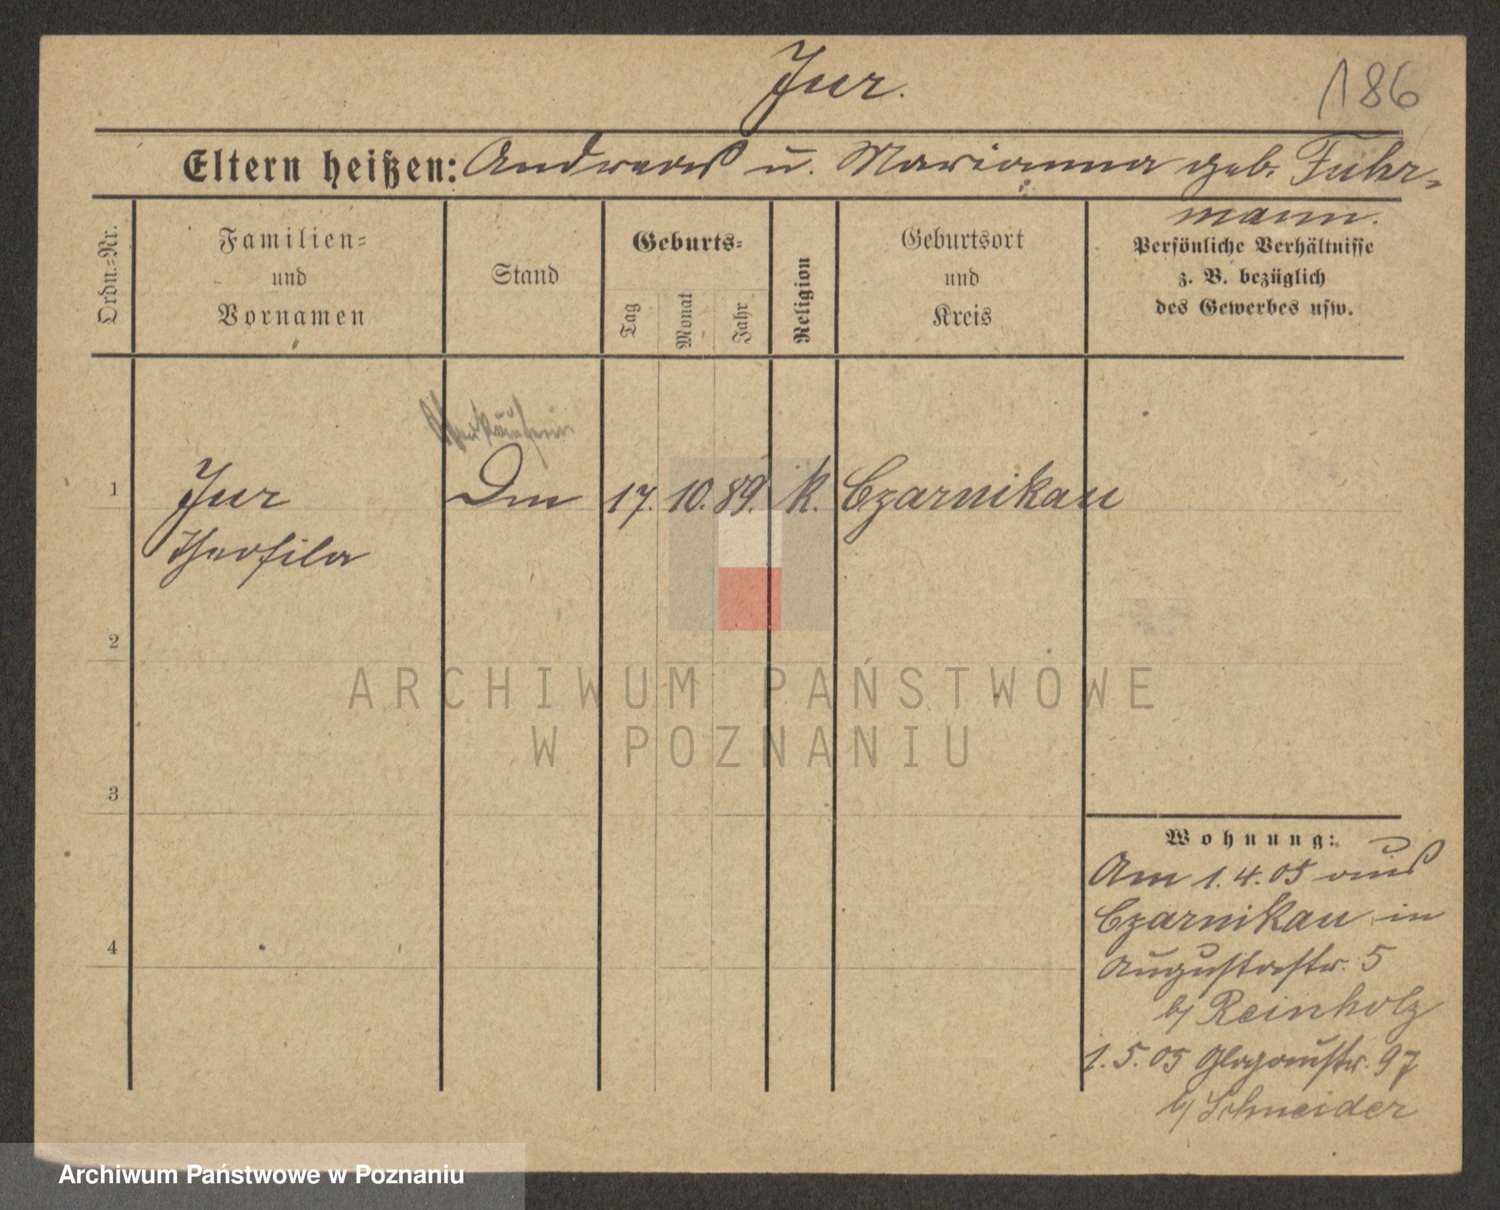 Jur.
186
Eltern heißen: Andreas u. Marianna geb. Fuhr-
mann.
Ordn.-Nr.
Familien-
und
Vornamen
Stand
Geburts-
Tag
Monat
Jahr
Religion
Geburtsort
und
Kreis
Persönliche Verhältnisse
z. B. bezüglich
des Gewerbes usw.
Verkäuferin
1 Jur Dm 17. 10. 89. k. Czarnikau
Theofila
2
3
4
Wohnung:
Am 1.4.05 aus
Czarnikau in
Augustastr. 5
b/ Reinholz
1.5.05 Glogaustr. 97
b/ Schneider
ARCHIWUM PAŃSTWOWE
W POZNANIU
Archiwum Państwowe w Poznaniu